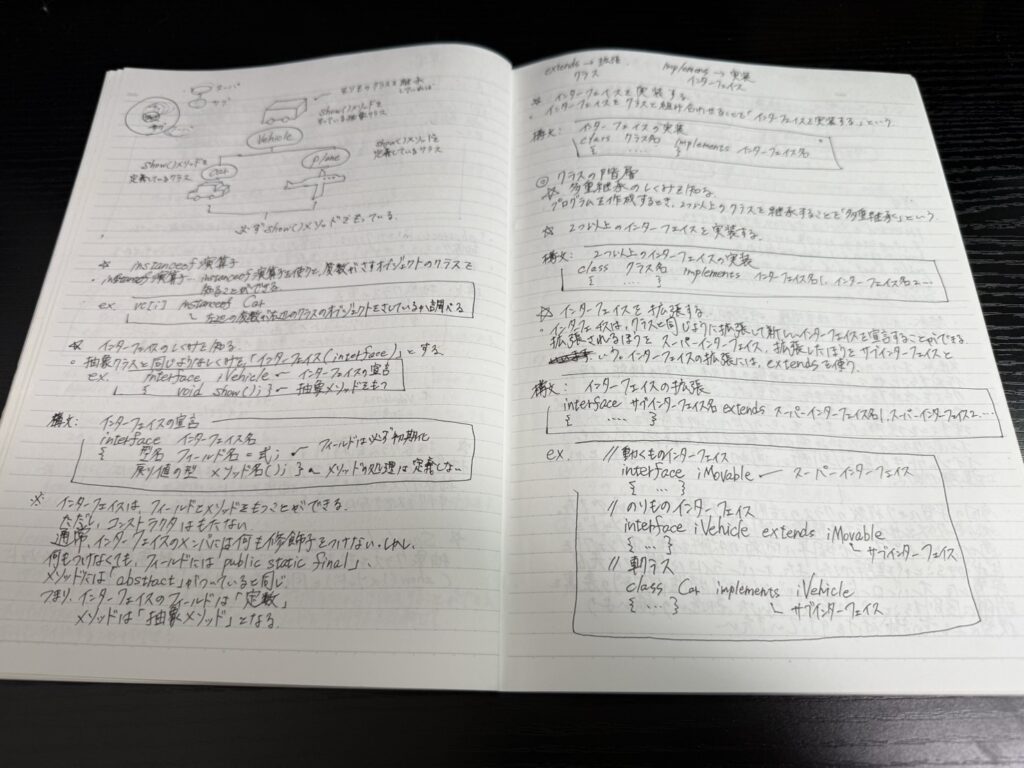 スーパ
サブ
のりものクラスを継承
しているな
show()メソッドを
もっている抽象クラス
Vehicle
show()メソッドを
定義しているクラス
Car
plane
show()メソッドを
定義しているクラス
必ずshow()メソッドをもっている.
☆ instanceof演算子
instanceof演算子を使うと、変数がさすオブジェクトのクラスを
知ることができる.
ex. vc[i] instanceof Car
左辺の変数が右辺のクラスのオブジェクトをさしているか調べる
☆ インターフェイスのしくみを知る.
・抽象クラスと同じようなしくみを「インターフェイス(interface)」とする.
ex. interface iVehicle ← インターフェイスの宣言
{ void show(); } ← 抽象メソッドをもつ
構文: インターフェイスの宣言
interface インターフェイス名
{ 型名 フィールド名 = 式; ← フィールドは必ず初期化
戻り値の型 メソッド名(); } ← メソッドの処理は定義しない
※ インターフェイスは、フィールドとメソッドをもつことができる.
ただし、コンストラクタはもたない.
通常、インターフェイスのメンバには何も修飾子をつけない.しかし、
何もつけなくても、フィールドには「public static final」、
メソッドには「abstract」がついていると同じ.
つまり、インターフェイスのフィールドは「定数」
メソッドは「抽象メソッド」となる.
extends → 拡張
クラス
implement → 実装
インターフェイス
☆ インターフェイスを実装する.
・インターフェイスをクラスと組み合わせることで「インターフェイスを実装する」という.
構文: インターフェイスの実装
class クラス名 implements インターフェイス名
{ ‥‥ }
◎ クラスの階層
☆ 多重継承のしくみを知る.
プログラムを作成するとき、2つ以上のクラスを継承することを「多重継承」という.
☆ 2つ以上のインターフェイスを実装する.
構文: 2つ以上のインターフェイスの実装
class クラス名 implements インターフェイス名1, インターフェイス名2…
{ ‥‥ }
☆ インターフェイスを拡張する.
・インターフェイスは、クラスと同じように拡張して新しいインターフェイスを宣言することができる.
拡張されるほうをスーパーインターフェイス、拡張したほうをサブインターフェイスと
いう。インターフェイスの拡張には、extendsを使う.
構文: インターフェイスの拡張
interface サブインターフェイス名 extends スーパーインターフェイス名1, スーパーインターフェイス2, …
{ ‥‥ }
ex. //動くものインターフェイス
interface iMovable ← スーパーインターフェイス
{ … }
//のりものインターフェイス
interface iVehicle extends iMovable
{ … }
サブインターフェイス
//車クラス
class Car implements iVehicle
{ … }
サブインターフェイス